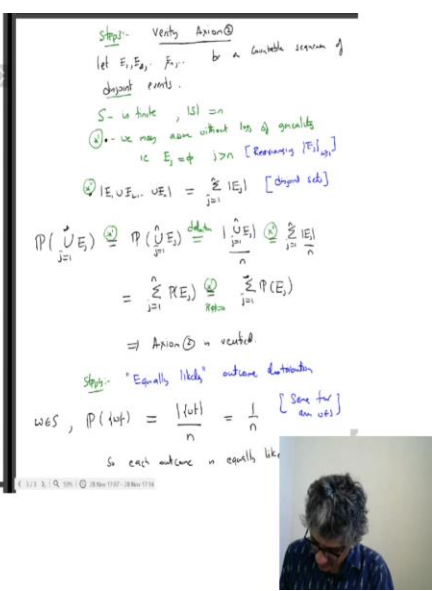 Step3:- Verify Axiom ②
let E₁, E₂, ... Eₙ, ... be a countable sequence of
disjoint events.
S - is finite , |S| = n
we may assume without loss of generality
ie E_j = φ j > n [Rearranging {E_j}_{j≥1}]
|E₁ ∪ E₂ ... ∪ Eₙ| = Σ_{j=1}^{n} |E_j| [disjoint sets]
ℙ( ∪_{j=1}^{∞} E_j ) = ℙ( ∪_{j=1}^{n} E_j ) = |∪_{j=1}^{n} E_j| / n = Σ_{j=1}^{n} |E_j| / n
= Σ_{j=1}^{n} ℙ(E_j) = Σ_{j=1}^{∞} ℙ(E_j)
⇒ Axiom ② is verified.
"Equally likely" outcome distribution
ω∈S , ℙ({ω}) = |{ω}| / n = 1 / n [Same for all ω∈S]
So each outcome is equally